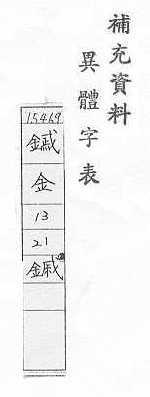 補充資料
異體字表
15469
金
13
21